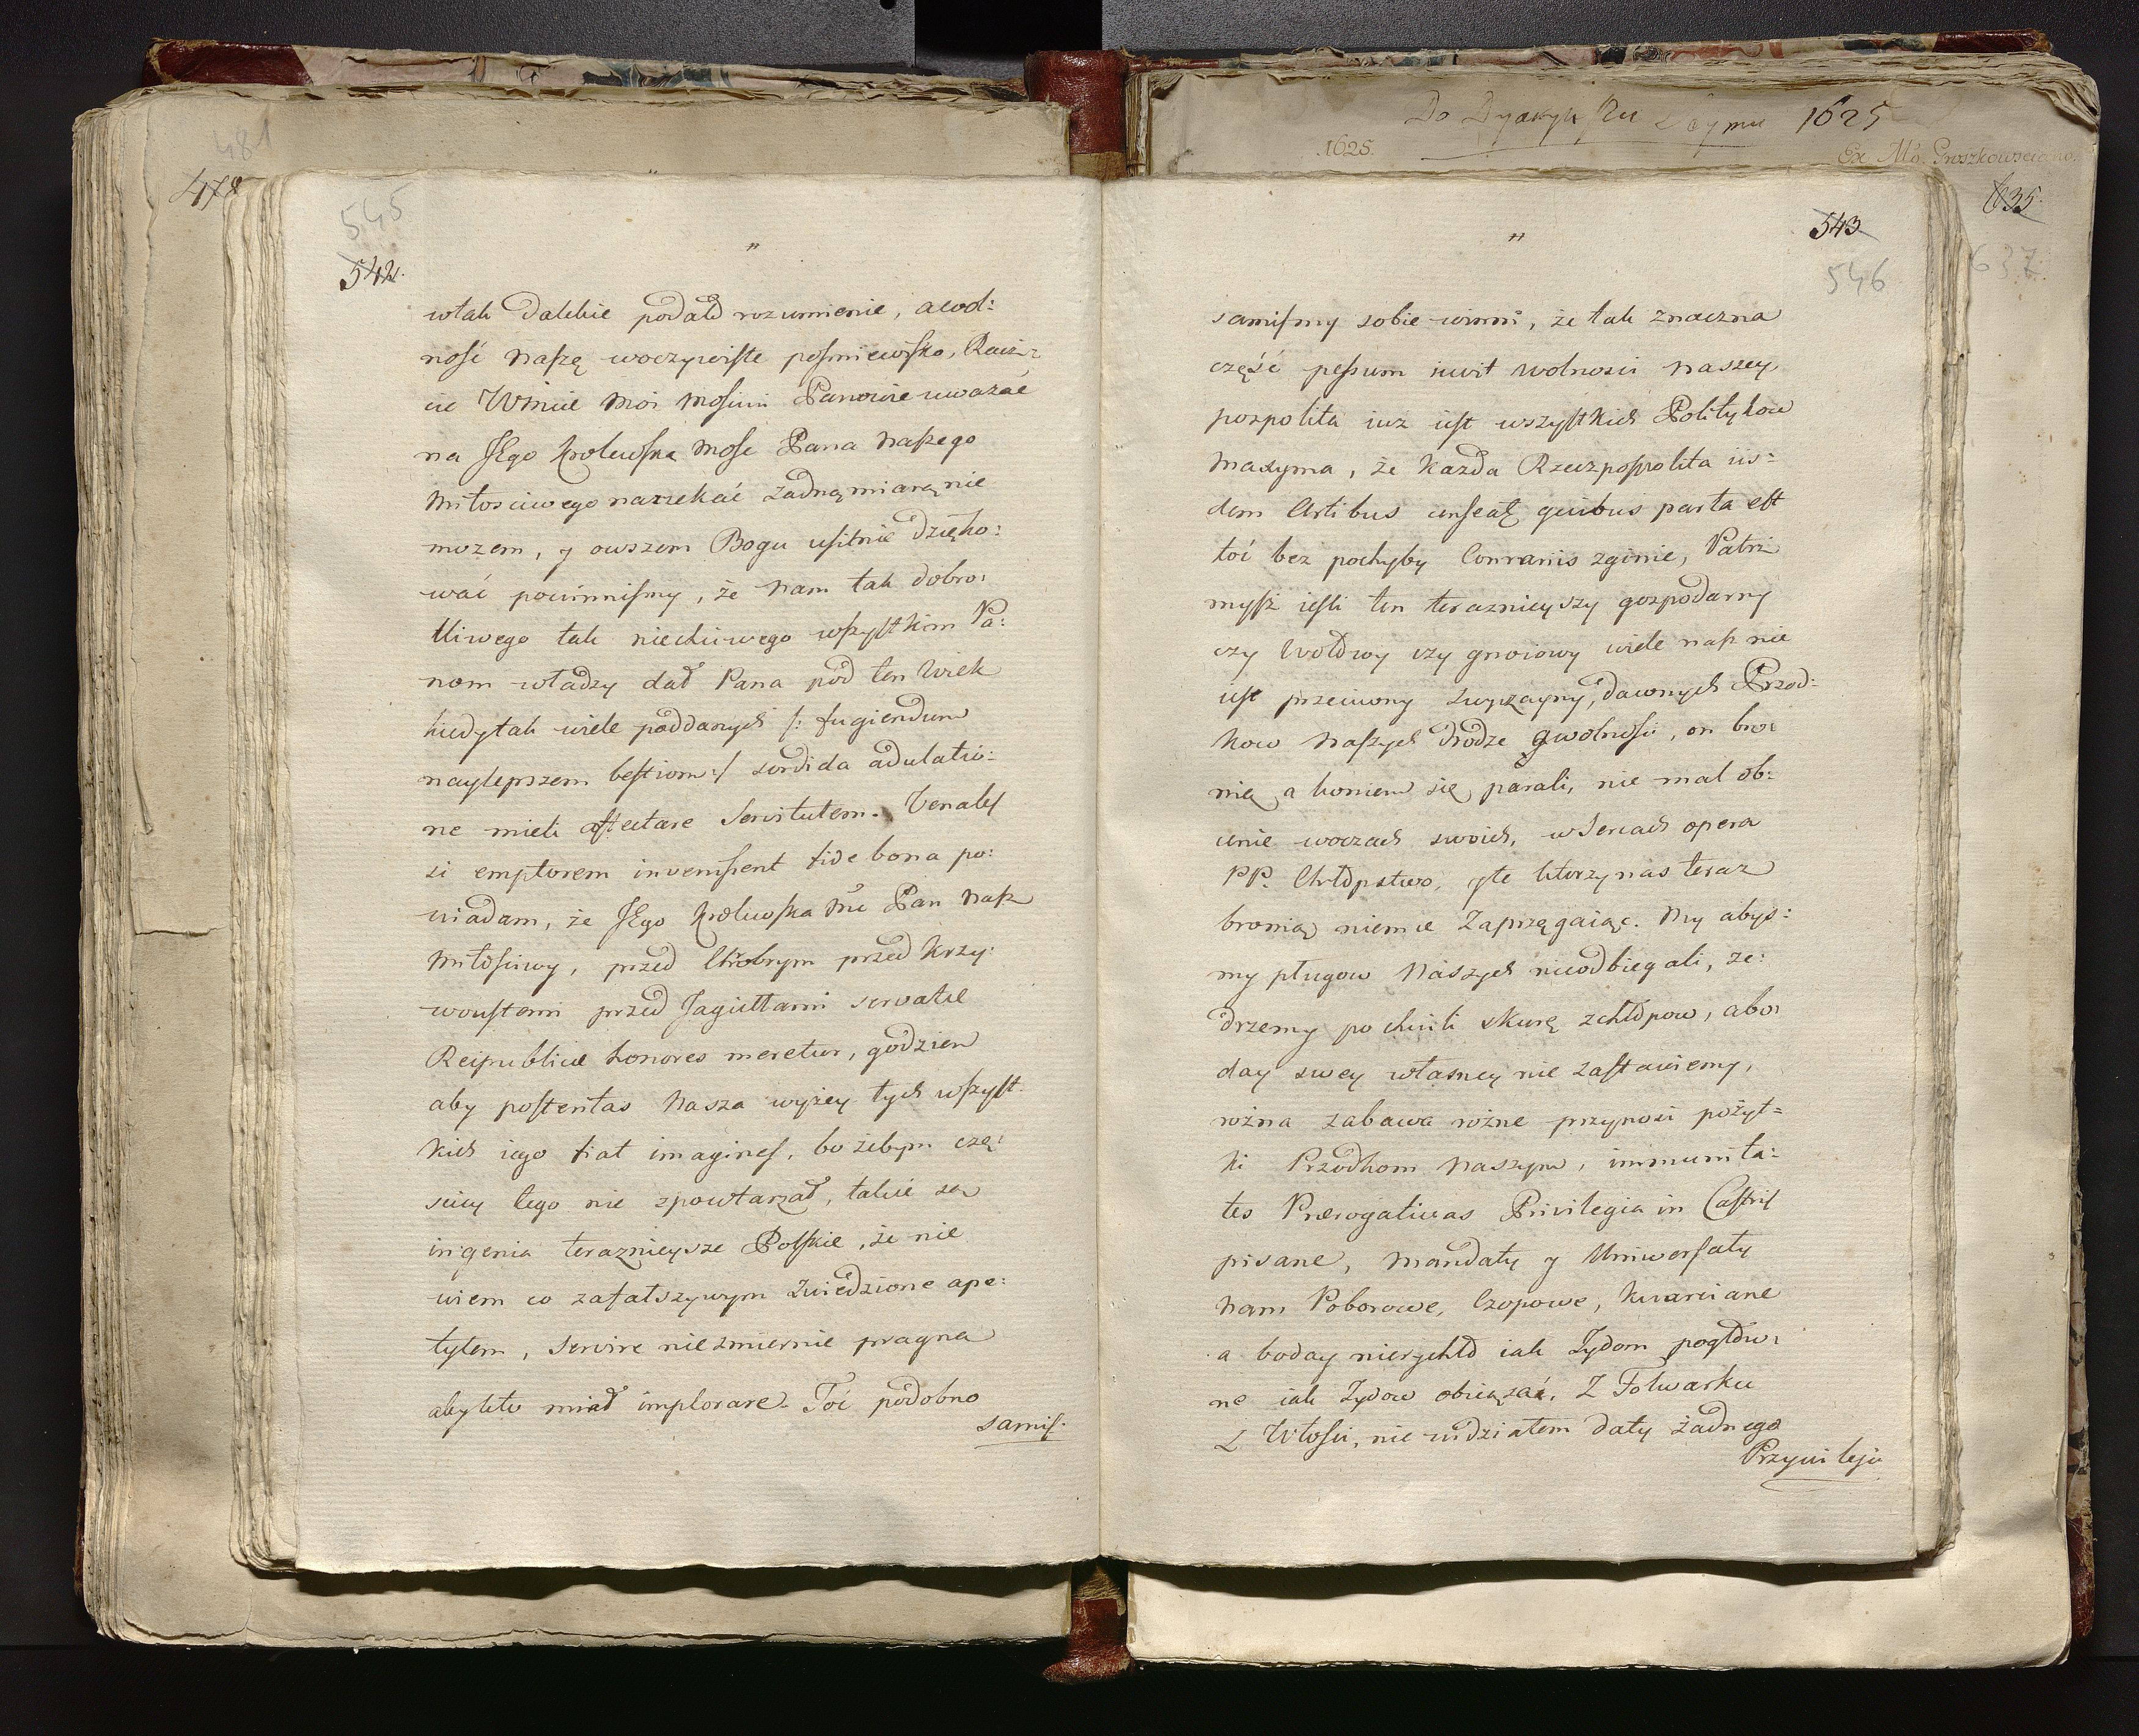 481
478
545
542.
"
wtak dalekie podał rozumienie, a wol:
ność naszę woczywiste pośmiewisko, Racz:
cie WMcie Moi Mościwi Panowie uwazać
na JEgo Krolewską Mość Pana naszego
Miłosciwego narzekać żadną miarą nie
mozem, y owszem Bogu usilnie dzięko:
wać powinnismy, że nam tak dobro:
tliwego tak niechciwego wszystkim Pa:
nom władzy dał Pana pod ten wiek
kiedy tak wiele poddanych /: fugiendum
naylepszem bestiom :/ sordida adulatio:
ne mieli affectare Servitutem. Venales
si emptorem invenissent fide bona po:
wiadam, że JEgo Krolewska Mć Pan nasz
Miłościwy, przed Chrobrym przed Krzy:
woustemi przed Jagiełłami servatae
Reipublicae honores meretur, godzien
aby posteritas nasza wyżey tych wszyst
kich iego fiat imagines, bo żebym czę:
sciey tego nie zpowtarzał, takie są
ingenia teraznieysze Polskie, że nie
wiem co zafałszywym zwiedzione ape:
tytem, servire niezmiernie pragną
aby kto miał implorare. Toć podobno
samis:
Do Dyaryuszu Seymu 1625
1625.
Ex Mo. Gnoszkowsciano.
635.
637.
543
546
"
samismy sobie winni, że tak znaczna
część pessum iwit wolnosci naszey,
pospolita iuz iest wszystkich Politykow
maxyma, że każda Rzeczpospolita iis:
dem Artibus censeat quibus parta est
toć bez pochyby Contrariis zginie, Patrz
mysz iesli ten teraznieyszy gospodarny
czy wołowy czy gnoiowy wiele nasz nie
iest przeciwny zwyczayny, dawnych Przod:
kow naszych drodze gwolności, on bro:
nią a koniem się parali, nie mal ob:
cenie woczach swoich, w Sercach opera
PP. Chłopstwo, yte ktorzy nas teraz
bronią niemie zaprzęgaiąc. My abys:
my pługow naszych nieodbiegali, ze:
drzemy po chwili skurę zchłopow, abo:
day swey własney nie zastawiemy,
rożna zabawa rożne przynosi pożyt=
ki Przodkom naszym, immunita:
tes Praerogativas Privilegia in Castris
pisane, mandaty y Uniwersały
nam Poborowe, Czopowe, Kwarciane
a boday nierychło iak Żydom pogłow:
ne iak Żydow obiązać. Z Folwarku
z Włosci, nie widziałem daty żadnego
Przywileju